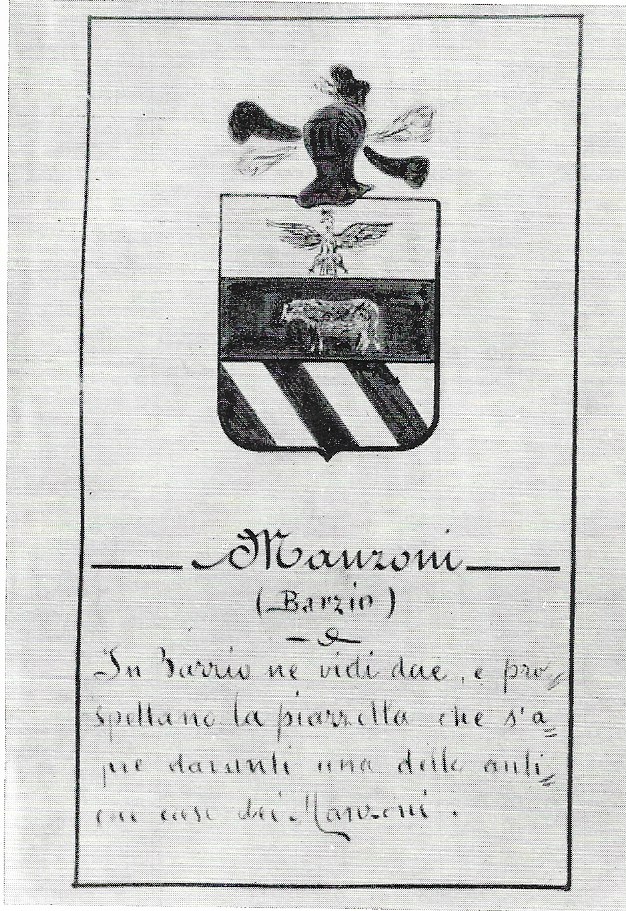 Manzoni
(Barzio)
In Barzio ne vidi due, e pro=
spettano la piazzetta che s'a=
pre davanti una delle anti=
che case dei Manzoni.